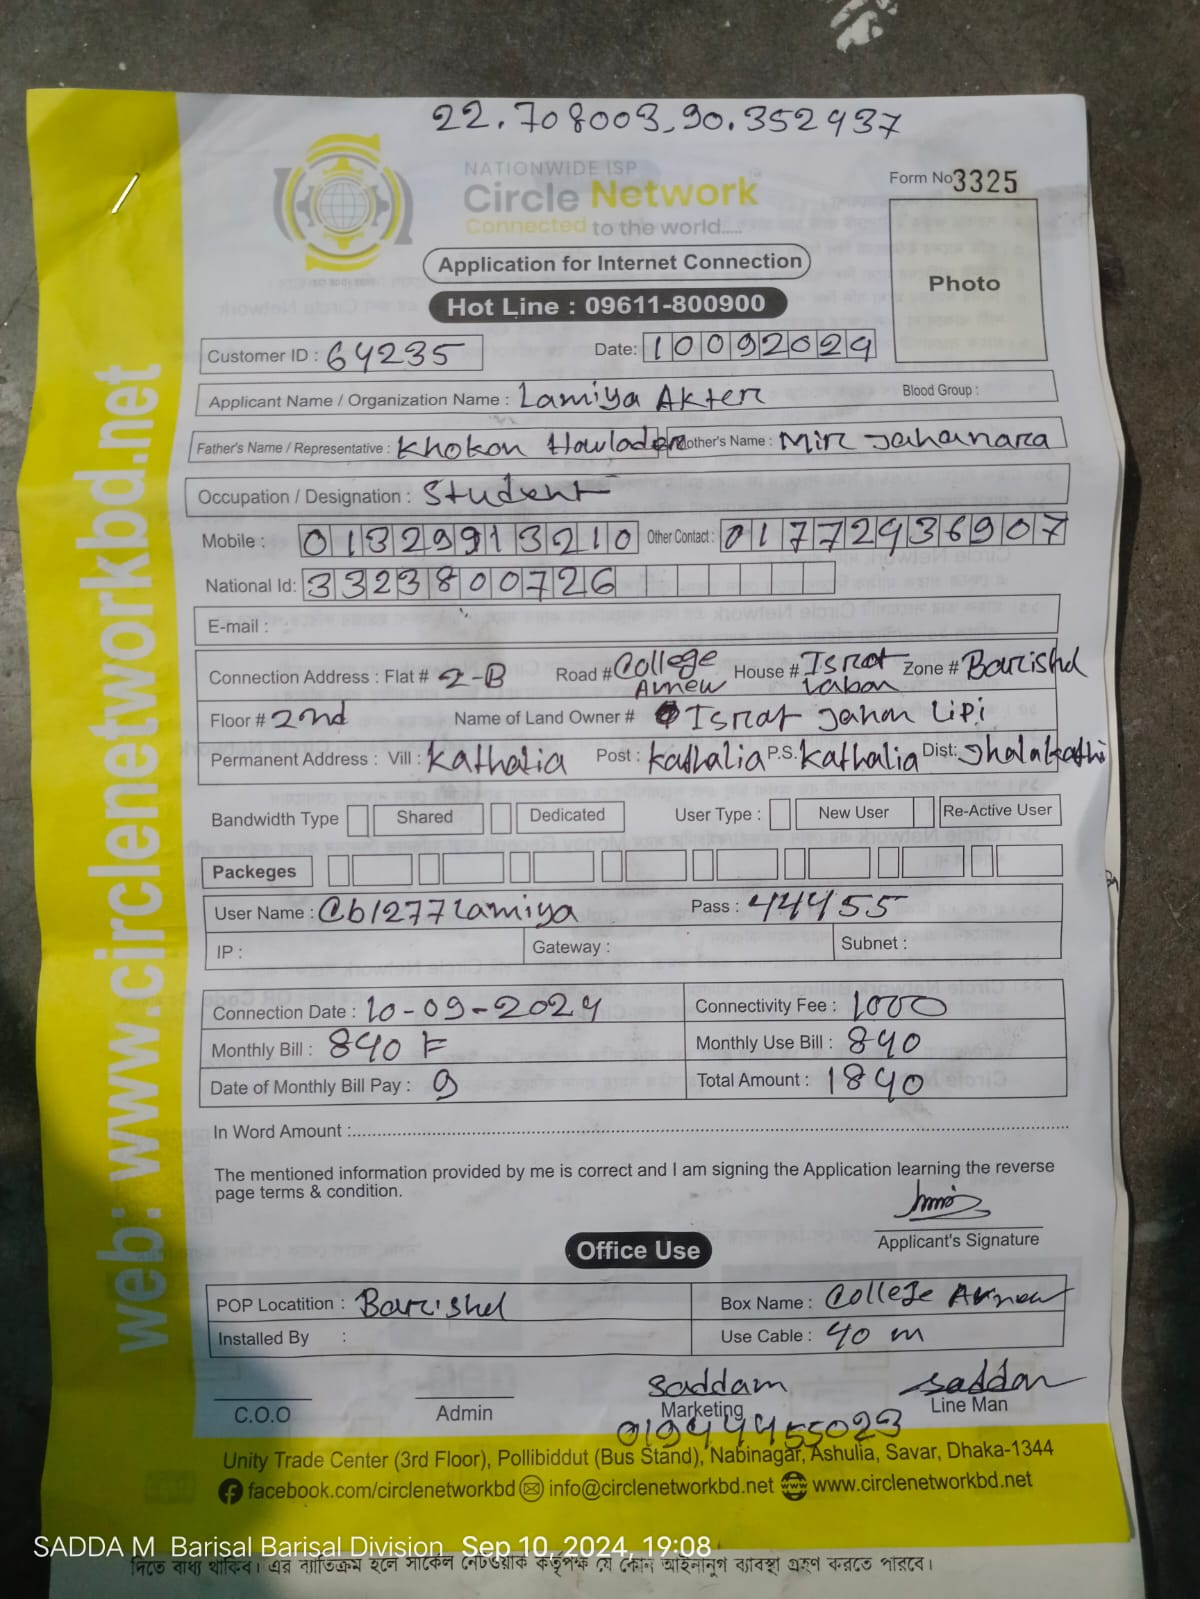 22.708003,90.352937
NATIONWIDE ISP
Circle Network
Connected to the world.....
Form No 3325
Photo
Application for Internet Connection
Hot Line : 09611-800900
Customer ID : 64235 Date: 10092024
Applicant Name / Organization Name : Lamiya Akter Blood Group :
Father's Name / Representative : Khokon Howlader Mother's Name : Mir Jahanara
Occupation / Designation : Student
Mobile : 01329913210 Other Contact : 01772936907
National Id: 3323800726
E-mail :
Connection Address : Flat # 2-B Road # College House # Israt Zone # Barishal
Floor # 2nd Name of Land Owner # Israt Jahan Lipi
Permanent Address : Vill : Kathalia Post : Kathalia P.S. Kathalia Dist: Jhalakathi
Bandwidth Type Shared Dedicated User Type : New User Re-Active User
Packeges
User Name : @b1277Lamiya Pass : 44455
IP : Gateway : Subnet :
Connection Date : 10-09-2024 Connectivity Fee : 1000
Monthly Bill : 840 Monthly Use Bill : 840
Date of Monthly Bill Pay : 9 Total Amount : 1840
In Word Amount :
The mentioned information provided by me is correct and I am signing the Application learning the reverse
page terms & condition.
Applicant's Signature
Office Use
POP Locatition : Barishal Box Name : College
Installed By : Use Cable : 40 m
Saddam Saddam
C.O.O Admin Marketing Line Man
01944455023
Unity Trade Center (3rd Floor), Pollibiddut (Bus Stand), Nabinagar, Ashulia, Savar, Dhaka-1344
facebook.com/circlenetworkbd info@circlenetworkbd.net www.circlenetworkbd.net
web: www.circlenetworkbd.net
SADDA M Barisal Barisal Division Sep 10, 2024, 19:08
দিতে বাধ্য থাকিব। এর ব্যতিক্রম হলে সার্কেল নেটওয়ার্ক কর্তৃপক্ষ যে কোন আইনানুগ ব্যবস্থা গ্রহণ করতে পারবে।